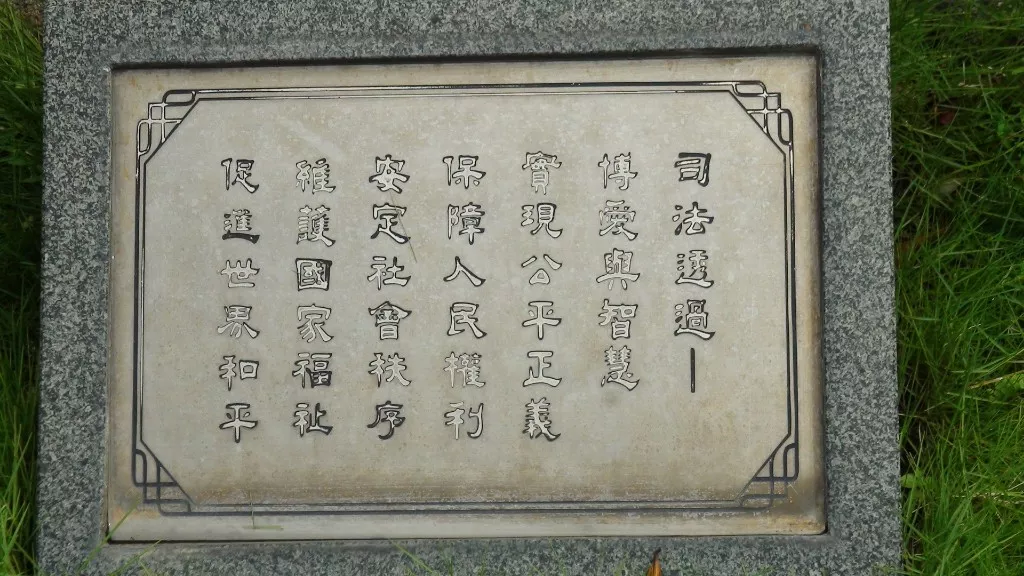 司法透過—
博愛與智慧
實現公平正義
保障人民權利
安定社會秩序
維護國家福祉
促進世界和平